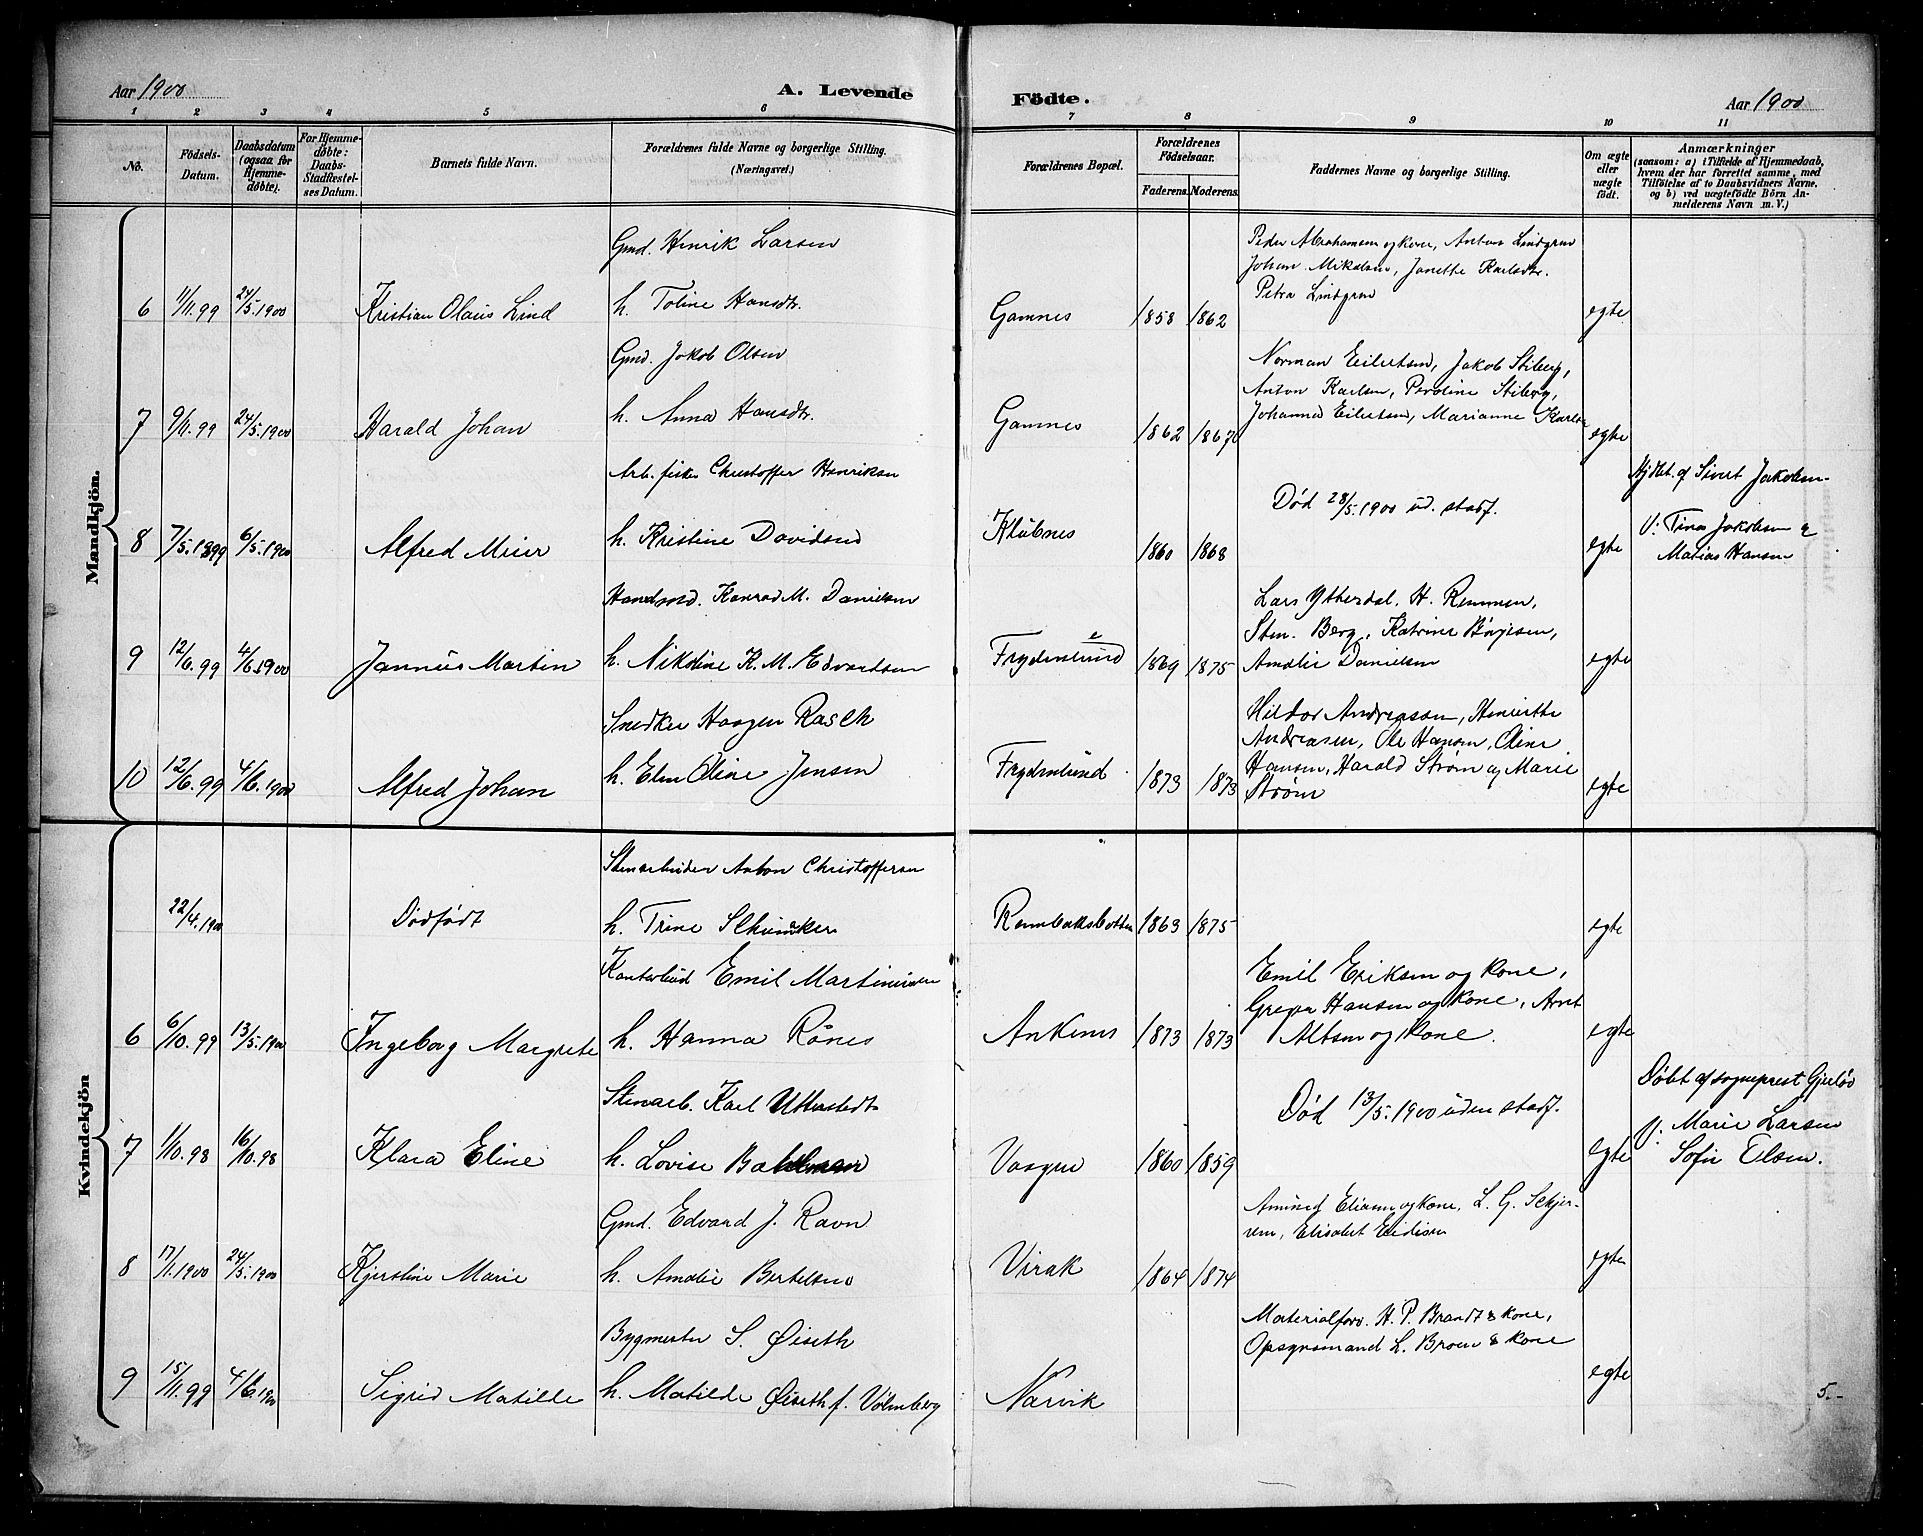 Aar 1900
A. Levende
Födte.
Aar 1900
1 2 3 4 5 6 7 8 9 10 11
No.
Födsels-
Datum.
Daabsdatum
(ogsaa for
Hjemme-
døbte).
For Hjemme-
døbte:
Daabs-
Stadfæstel-
ses Datum.
Barnets fulde Navn.
Forældrenes fulde Navne og borgerlige Stilling.
(Næringsvei.)
Forældrenes Bopæl.
Forældrenes
Födselsaar.
Faderens. Moderens.
Faddernes Navne og borgerlige Stilling.
Om ægte
eller
uægte
födt.
Anmærkninger
(saasom: a) i Tilfælde af Hjemmedaab,
hvem der har forrettet samme, med
Tilföielse af to Daabsvidners Navne,
og b) ved uægtefödte Börn An-
melderens Navn m. V.)
Mandkjön.
Gmd. Henrik Larsen
Peder Abrahamsen og kone, Anton Lindgren
Johan Mikalsen, Janette Karlsdtr.
Petra Lindgren
6 11/11.99 24/5.1900 Kristian Olaus Lind h. Toline Hansdtr. Gamnes 1858 1862 egte
Gmd. Jakob Olsen
Norman Eilertsen, Jakob Stiberg,
Anton Karlsen, Peroline Stiberg,
Johanna Eilertsen, Marianne Karlsen
7 9/11.99 24/5.1900 Harald Johan h. Anna Hansdtr. Gamnes 1862 1867 egte
Arb. fisker Christoffer Henriksen
Død 28/5.1900 ud. stadf.
Hjdbt. af Sivert Jakobsen
V: Tina Jakobsen &
Matias Hansen
8 7/5.1899 6/5.1900 Alfred Meier h. Kristine Davidsen Klubnes 1860 1868 egte
Handsmd. Konrad M. Danielsen
Lars Ytterdal, H. Remmen,
Sten. Berg, Katrine Børjesen,
Amalie Danielsen
9 12/6.99 4/6.1900 Jannus Martin h. Nikoline K. M. Edvardsen Frydenlund 1869 1875 egte
Snedker Haagen Rasch
Hildor Andreasen, Henriette
Andreasen, Ole Hansen, Oline
Hansen, Harald Strøm og Marie
Strøm
10 12/6.99 4/6.1900 Alfred Johan h. Elen Oline Jensen Frydenlund 1873 1873 egte
Kvindekjön
Stenarbeider Anton Christoffersen
22/4.1900 Dødfødt h. Trine 1863 1875 egte
Emil Martinusen
Emil Eriksen og kone,
Hansen og kone, Arnt
Altsen og kone.
6 6/10.99 13/5.1900 Ingeborg Margrete h. Hanna Rønes Ankenes 1873 1873 egte
Stenarb. Karl Utterstedt
Død 13/5.1900 uden stadf.
Døbt af sogneprest Gjerløv
V: Marie Larsen
Sofie Elsen.
7 1/10.98 16/10.98 Klara Eline h. Lovise 1860 1859 egte
Gmd. Edvard J. Ravn
Amund Eliasen og kone, L. G. Skjer-
ven, Elisabet Eidissen
8 17/1.1900 24/5.1900 Kjerstine Marie h. Amalie Bertelsen Virak 1864 1874 egte
Bygmester S. Øiseth
Materialforv. H. P. Brandt & kone,
Opsynsmand L. Broen & kone
9 15/11.99 4/6 1900 Sigrid Matilde h. Matilde Øiseth f. Volmberg Narvik egte 5.-